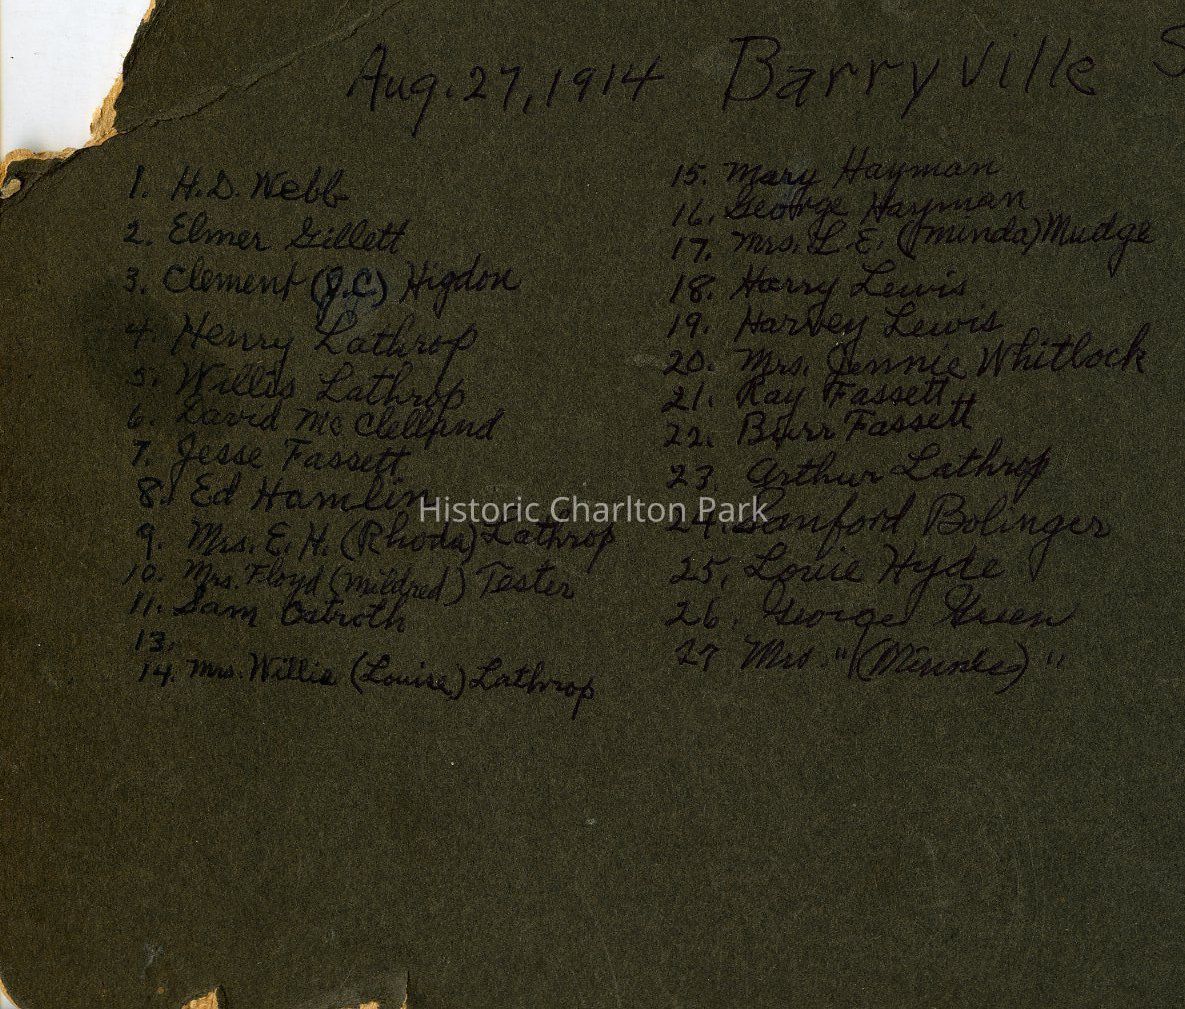 Aug. 27, 1914 Barryville S
1. H.D. Webb
2. Elmer Gillett
3. Clement (J.C.) Higdon
4. Henry Lathrop
5. Willis Lathrop
6. David McClelland
7. Jesse Fassett
8. Ed Hamlin
9. Mrs. E. H. (Rhoda) Lathrop
10. Mrs. Floyd (Mildred) Tester
11. Sam Ostroth
13.
14. Mrs. Willis (Louise) Lathrop
15. Mary Hayman
16. George Hayman
17. Mrs. L. E. (Minda) Mudge
18. Harry Lewis
19. Harvey Lewis
20. Mrs. Jennie Whitlock
21. Ray Fassett
22. Burr Fassett
23. Arthur Lathrop
24. Sanford Bolinger
25. Louie Hyde
26. George Green
27 Mrs. " (Minnie) "
Historic Charlton Park